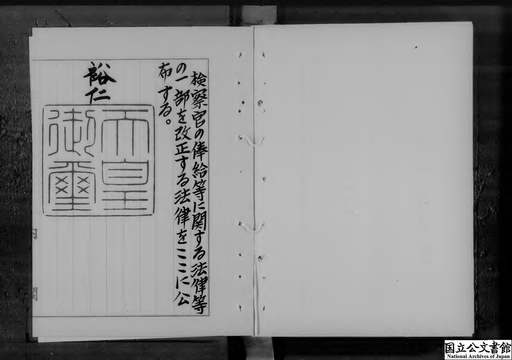 検察官の俸給等に関する法律等
の一部を改正する法律をここに公
布する。
裕仁
天皇
御璽
内閣
国立公文書館
National Archives of Japan